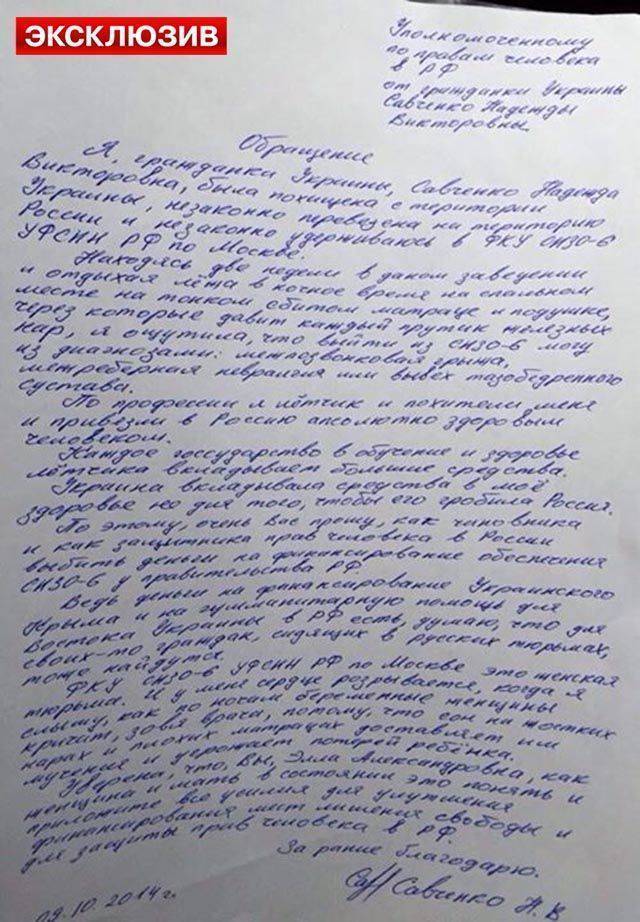 ЭКСКЛЮЗИВ
Уполномоченному
по правам человека
в РФ
от гражданки Украины
Савченко Надежды
Викторовны
Обращение
Я, гражданка Украины, Савченко Надежда
Викторовна, была похищена с територии
Украины, незаконно перевезена на територию
России и незаконно удерживаюсь в ФКУ СИЗО-6
УФСИН РФ по Москве.
Находясь две недели в даном заведении
и отдыхая лёжа в ночное время на спальном
месте на тонком сбитом матраце и подушке,
через которые давит каждый прутик железных
нар, я ощутила, что выйти из СИЗО-6 могу
из диагнозами: межпозвонковая грыжа,
метреберная невралгия или вывех тазобедренного
сустава.
По профессии я лётчик и похители меня
и привезли в Россию апсолютно здоровым
человеком.
Каждое госсударство в обучение и здоровье
лётчика вкладывает большие средства.
Украина вкладывала средства в моё
здоровье не для того, чтобы его гробила Россия.
По этому, очень Вас прошу, как чиновника
и как защитника прав человека в России
выбить деньги на финансирование обеспечения
СИЗО-6 у правительства РФ.
Ведь деньги на финансирование Украинского
Крыма и на гуммунитарную помощь для
Востока Украины в РФ есть, думаю, что для
своих-то граждан, сидящих в русских тюрьмах,
тоже найдутся.
ФКУ СИЗО-6 УФСИН РФ по Москве это женская
тюрьма. И у меня сердце розрывается, когда я
слышу, как по ночам беременные женщины
кричат, зовя врача, потому, что сон на жостких
нарах и плохих матрацах доставляет им
мучения и угрожает потерей ребёнка.
Уверена, что, Вы, Элла Александровна, как
женщина и мать в состоянии это понять и
приложите все усилия для улутшения
финансирования мест лишения свободы и
для защиты прав человека в РФ.
За рание благодарю.
Савченко Н. В
09.10.2014г.